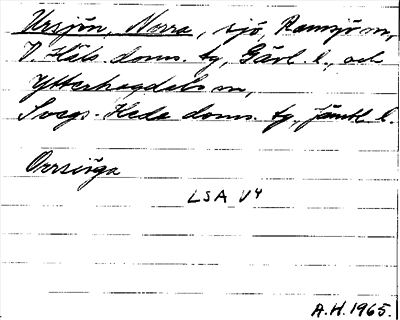 Ursjön, Norra, sjö, Ramsjö sn,
V. Häls. doms. tg, Gävl. l., och
Ytterhogdals sn,
Svegs-Heda doms. tg., Jämtl. l.
Orrsiöga
LSA V4
A.H. 1965.